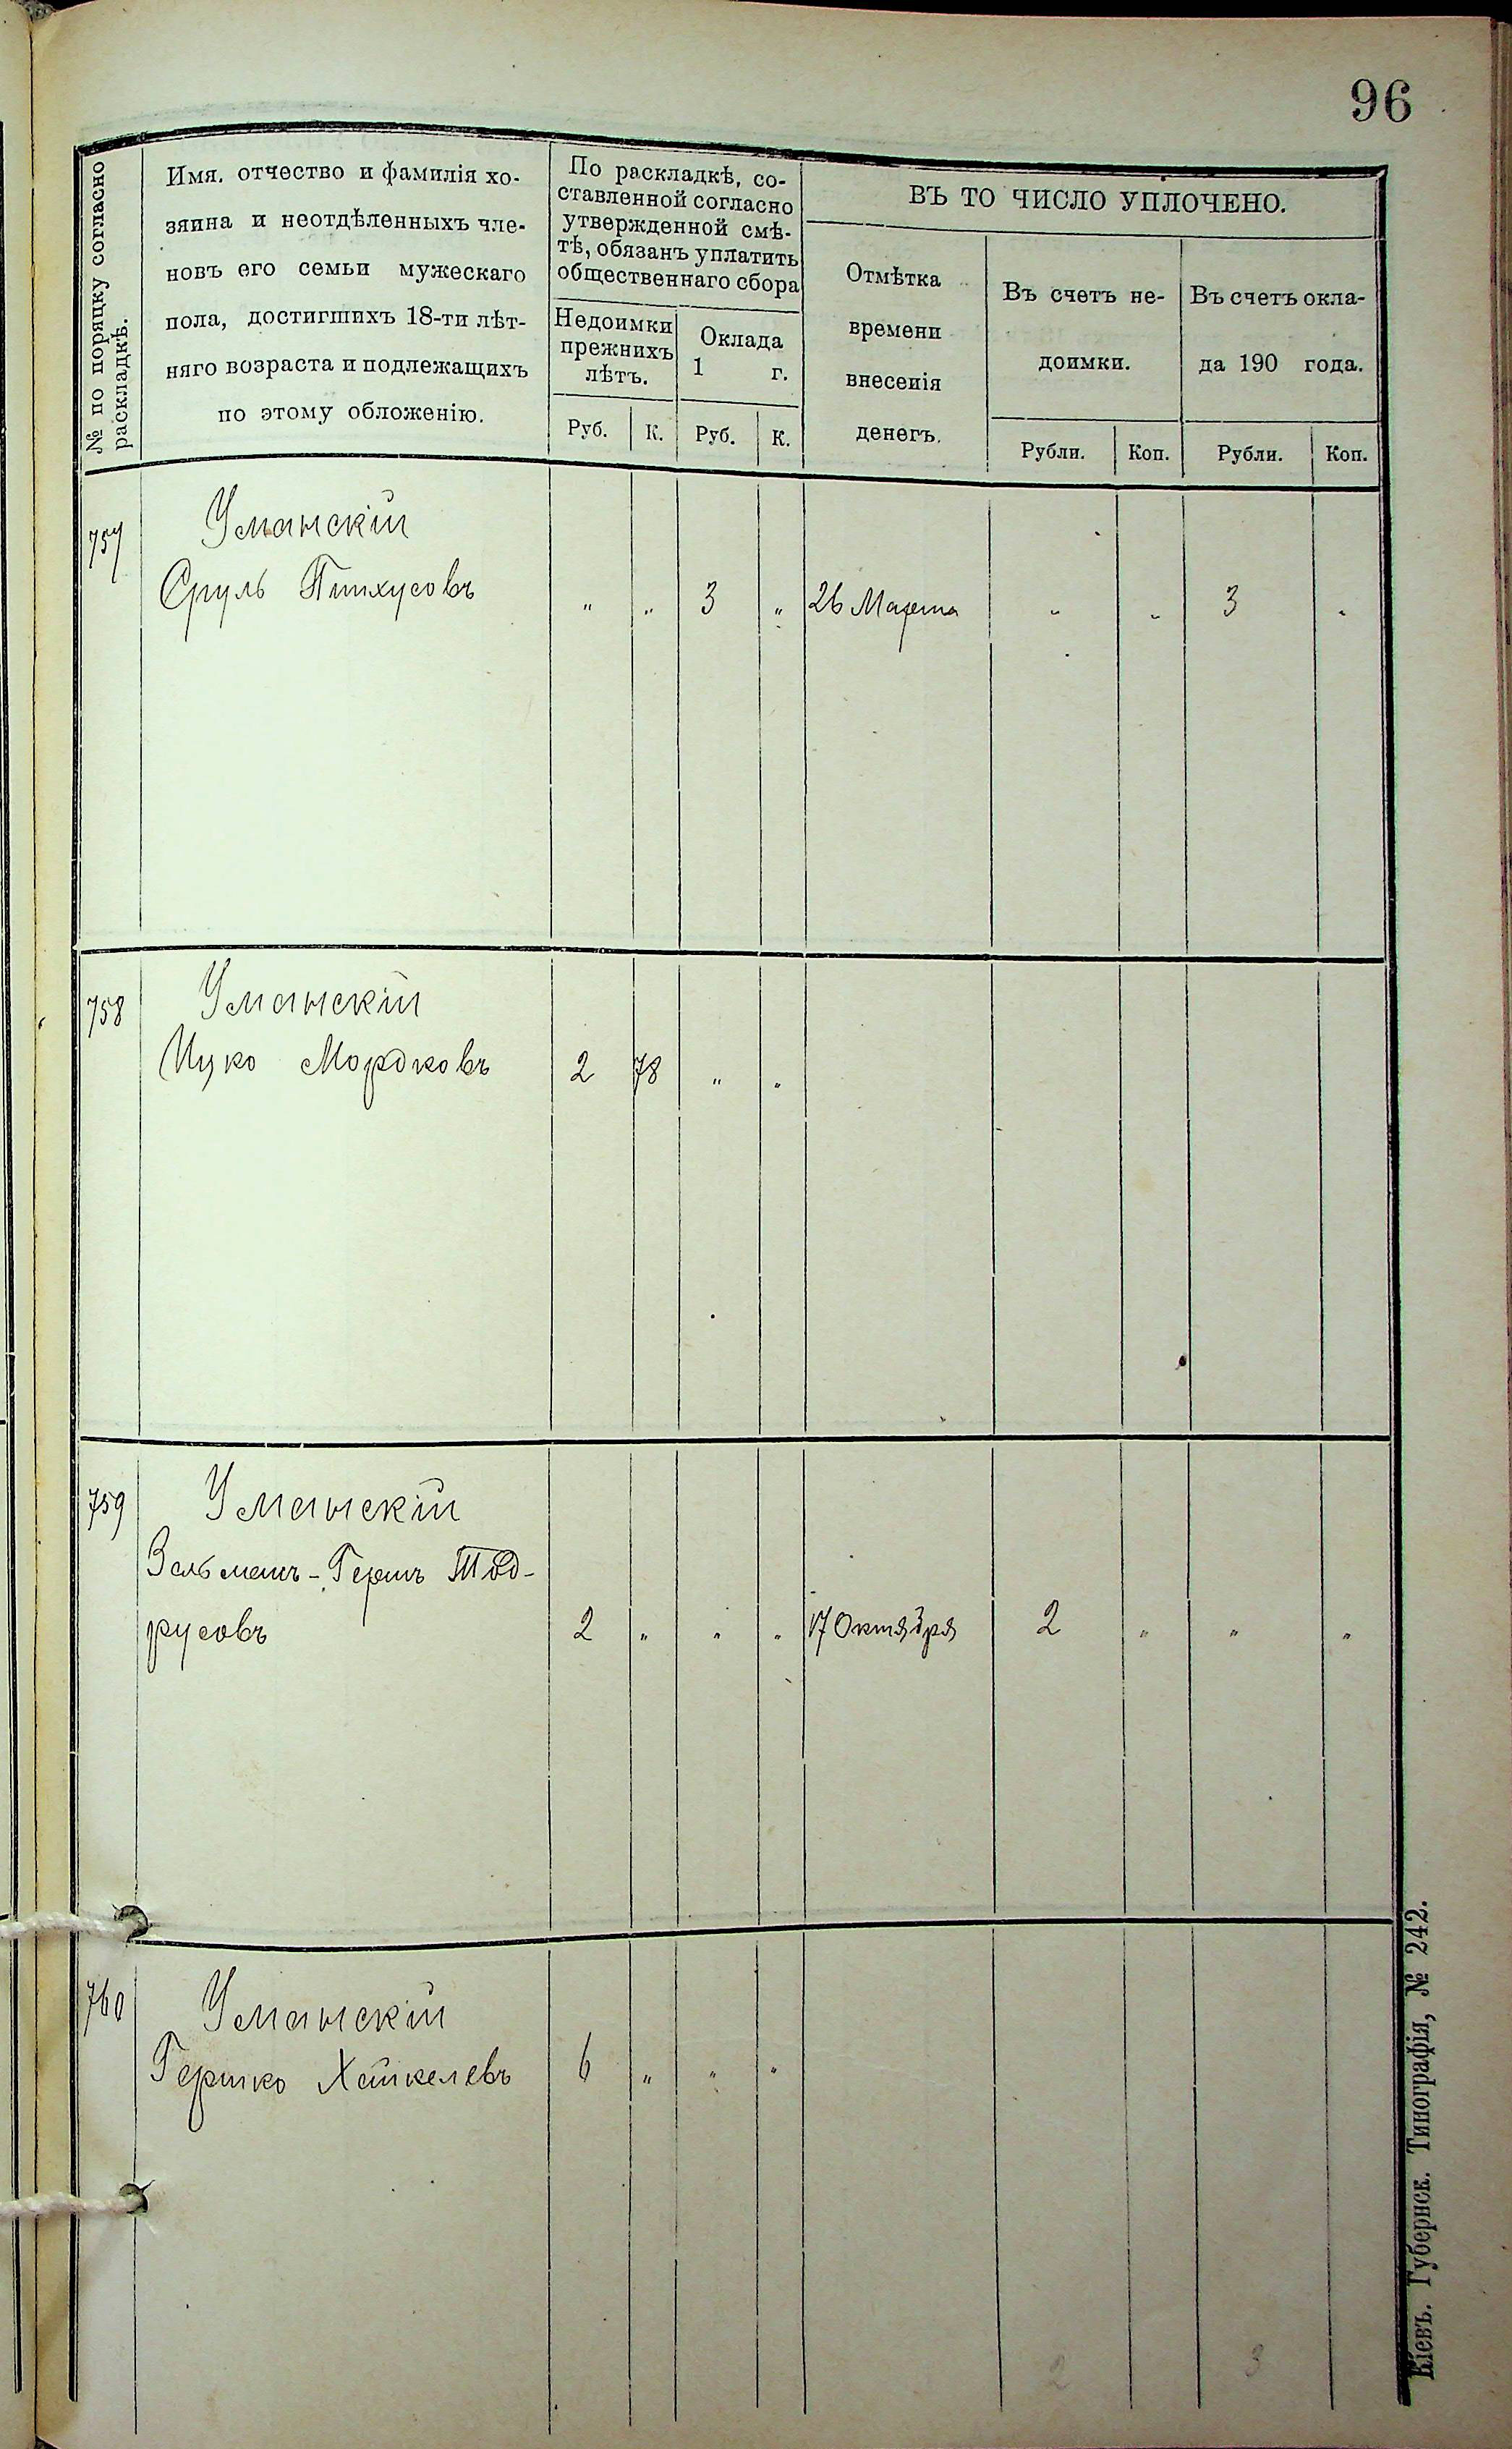 96
№ по поряцку согласно
раскладкѣ.
Имя. отчество и фамилія хо-
зяина и неотдѣленныхъ чле-
новъ его семьи мужескаго
пола, достигшихъ 18-ти лѣт-
няго возраста и подлежащихъ
по этому обложенію.
По раскладкѣ, со-
ставленной согласно
утвержденной смѣ-
тѣ, обязанъ уплатить
общественнаго сбора
Недоимки
прежнихъ
лѣтъ.
Оклада
1 г.
Руб. К. Руб. К.
ВЪ ТО ЧИСЛО УПЛОЧЕНО.
Отмѣтка
времени
внесенія
денегъ.
Въ счетъ не-
доимки.
Въ счетъ окла-
да 190 года.
Рубли. Коп. Рубли. Коп.
757 Уманскій
Сруль Пинхусовъ " " 3 " 26 Марта " " 3 "
758 Уманскій
Ицко Мордковъ 2 78 " "
759 Уманскій
Зельманъ-Гершъ Тод-
русовъ 2 " " " 17 Октября 2 " " "
760 Уманскій
Гершко Хайкелевъ 6 " " "
2 3
Кіевъ. Губернск. Типографія, № 242.